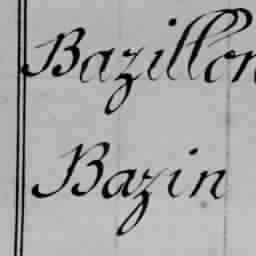 Bazillon
Bazin